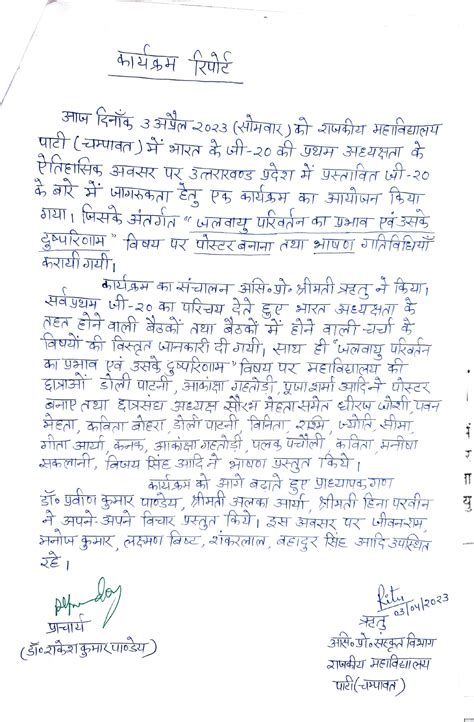 कार्यक्रम रिपोर्ट
आज दिनाँक 3 अप्रैल 2023 (सोमवार) को राजकीय महाविद्यालय
पाटी (चम्पावत) में भारत के जी-20 की प्रथम अध्यक्षता के
ऐतिहासिक अवसर पर उत्तराखण्ड प्रदेश में प्रस्तावित जी-20
के बारे में जागरूकता हेतु एक कार्यक्रम का आयोजन किया
गया। जिसके अंतर्गत "जलवायु परिवर्तन का प्रभाव एवं उसके
दुष्परिणाम" विषय पर पोस्टर बनाना तथा भाषण गतिविधियाँ
करायी गयी।
कार्यक्रम का संचालन असि॰प्रो॰ श्रीमती ऋतु ने किया।
सर्वप्रथम जी-20 का परिचय देते हुए भारत अध्यक्षता के
तहत होने वाली बैठकों तथा बैठकों में होने वाली चर्चा के
विषयों की विस्तृत जानकारी दी गयी। साथ ही "जलवायु परिवर्तन
का प्रभाव एवं उसके दुष्परिणाम" विषय पर महाविद्यालय की
छात्राओं डोली पाटनी, आकांक्षा गहतोड़ी, पूजा शर्मा आदि ने पोस्टर
बनाए तथा छात्रसंघ अध्यक्ष सौरभ मेहता समेत धीरज जोशी, पवन
मेहता, कविता बोहरा, डोली पाटनी, विनिता, रश्मि, ज्योति, सीमा,
गीता आर्या, कनक, आकांक्षा गहतोड़ी, पलक पचौली, कविता, मनीषा
सकलानी, विजय सिंह आदि ने भाषण प्रस्तुत किये।
कार्यक्रम को आगे बढ़ाते हुए प्राध्यापक गण
डॉ॰ प्रवीण कुमार पाण्डेय, श्रीमती अलका आर्या, श्रीमती हिना परवीन
ने अपने-अपने विचार प्रस्तुत किये। इस अवसर पर जीवनराम,
मनोज कुमार, लक्ष्मण बिष्ट, शंकरलाल, बहादुर सिंह आदि उपस्थित
रहे।
प्राचार्य
(डॉ॰ राकेश कुमार पाण्डेय)
Ritu
03/04/2023
ऋतु
असि॰प्रो॰ संस्कृत विभाग
राजकीय महाविद्यालय
पाटी (चम्पावत)